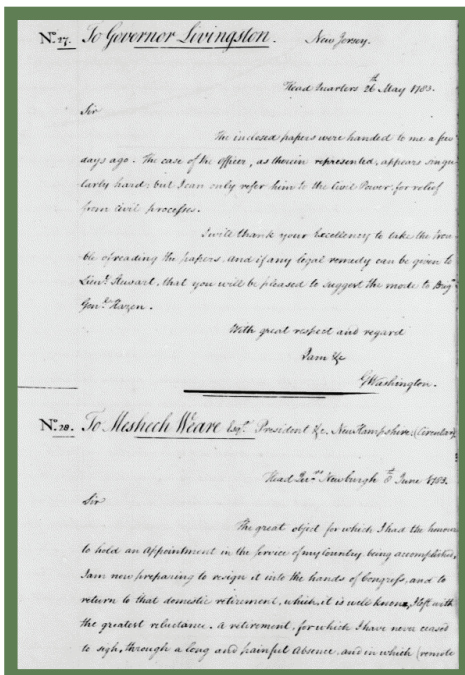 No. 27. To Governor Livingston. New Jersey.
Head Quarters 26th May 1783.
Sir
The inclosed papers were handed to me a few
days ago. The case of the Officer, as therein represented, appears singu-
larly hard; but I can only refer him to the Civil Power, for relief
from civil processes.
I will thank your Excellency to take the trou-
ble of reading the papers. And if any legal remedy can be given to
Lieut. Stewart, that you will be pleased to suggest the mode to Brigr
Genl. Hazen.
With great respect and regard
I am &c
G Washington.
No. 28. To Meshech Weare Esqr. President &c. New Hampshire. (Circular)
Head Qrs. Newburgh 8th June 1783.
Sir
The great object for which I had the honour
to hold an Appointment in the service of my Country being accomplished,
I am now preparing to resign it into the hands of Congress, and to
return to that domestic retirement, which, it is well known, I left with
the greatest reluctance. A retirement, for which I have never ceased
to sigh, through a long and painful Absence, and in which (remote